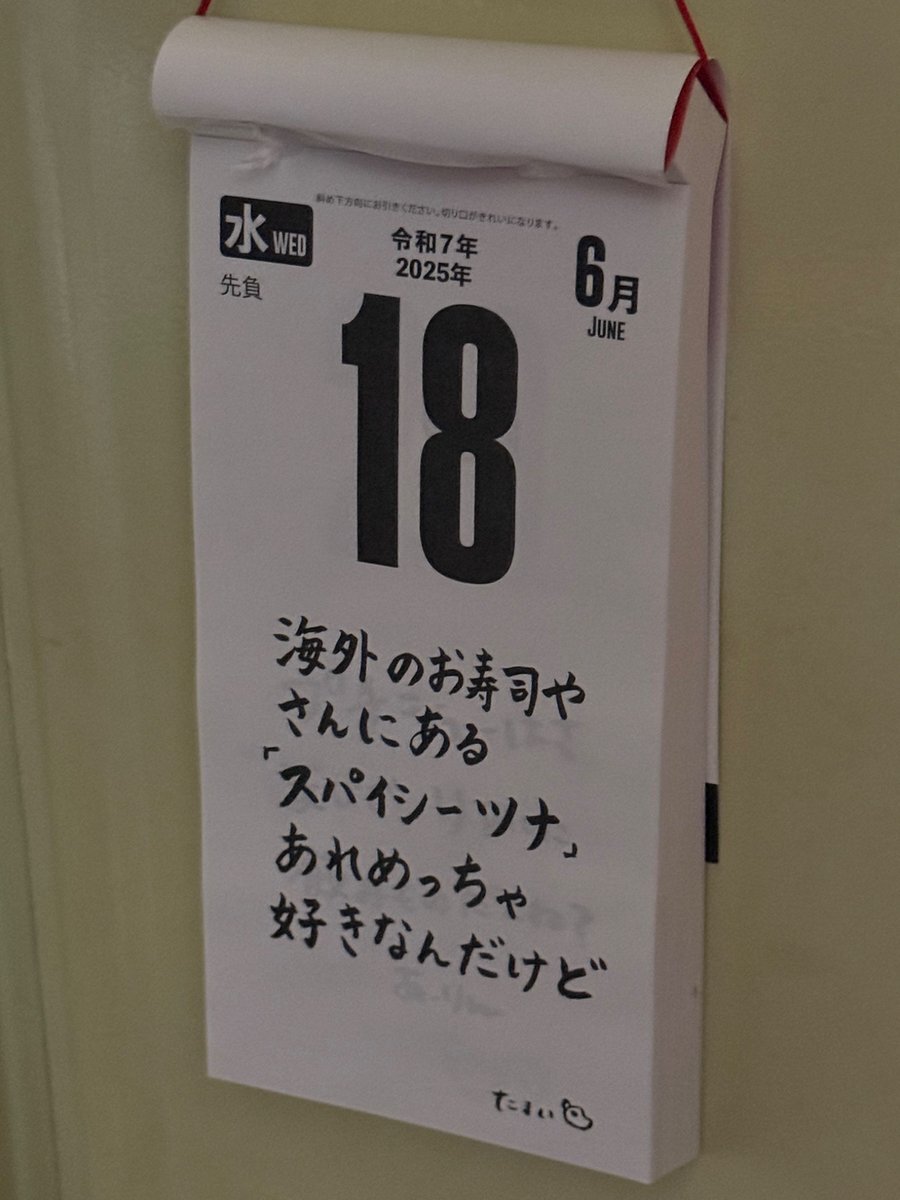 斜め下方向にお引きください。切り口がきれいになります。
水 WED
令和7年
2025年
6月
JUNE
先負
18
海外のお寿司や
さんにある
「スパイシーツナ」
あれめっちゃ
好きなんだけど